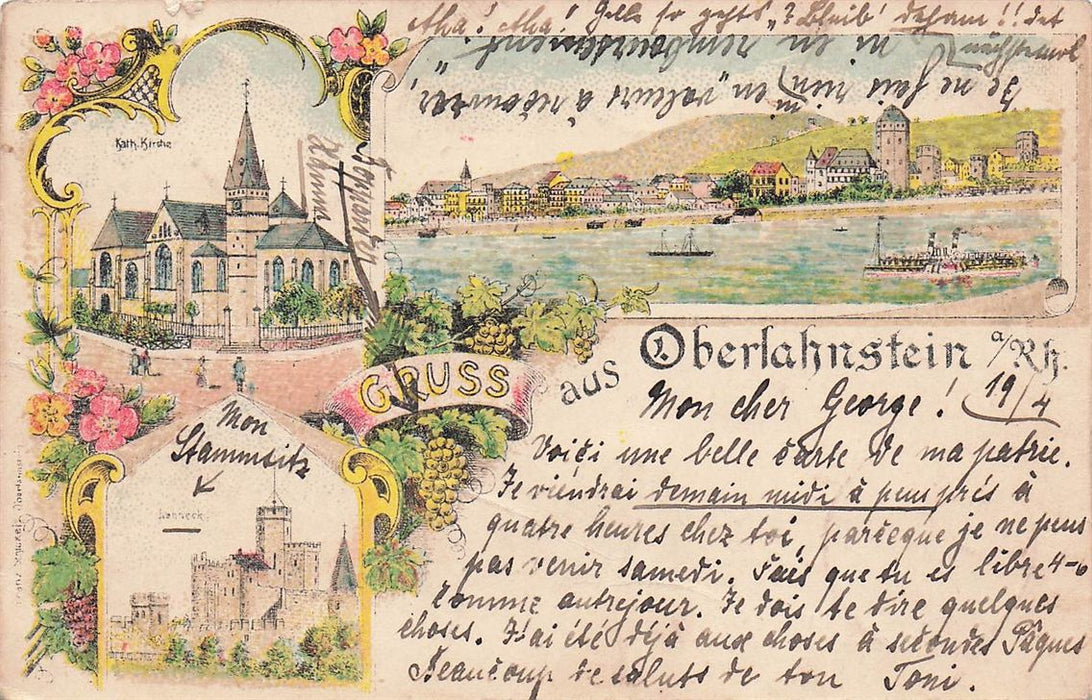 Aha! Aha! Gelle so gehts? Bleib' daham!! det
nächstemol
Je ne sais rien en "valeurs à recouvrer"
ni en remboursement!
Kath. Kirche
GRUSS
aus Oberlahnstein a/Rh.
Mon
Stammsitz
Lahneck
Mon cher George! 19/4
Voiçi une belle carte de ma patrie.
Je viendrai demain midi à peu près à
quatre heures chez toi, parceque je ne peus
pas venir samedi. Fais que tu es libre 4-6
comme autrejour. Je dois te dire quelques
choses. J'ai été déjà aux choses à secondes Pâques
Beaucoup de saluts de ton Toni.